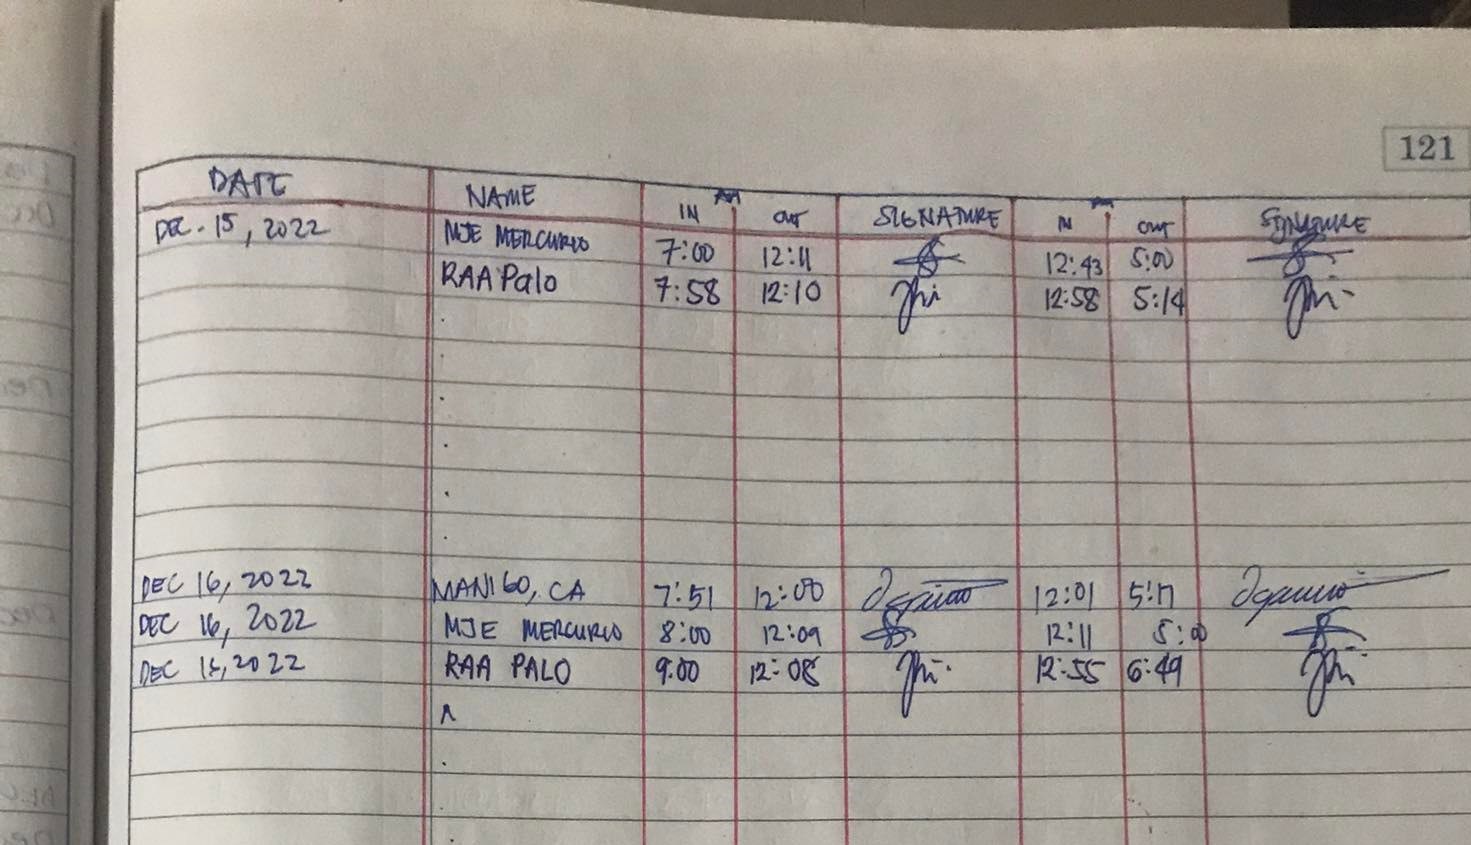 121
DATE NAME AM PM
IN OUT SIGNATURE IN OUT SIGNATURE
DEC. 15, 2022 MJE MERCURIO 7:00 12:11 12:43 5:00
RAA Palo 7:58 12:10 12:58 5:14
DEC 16, 2022 MANIGO, CA 7:51 12:00 12:01 5:17
DEC 16, 2022 MJE MERCURIO 8:00 12:09 12:11 5:00
DEC 16, 2022 RAA PALO 9:00 12:08 12:55 6:49